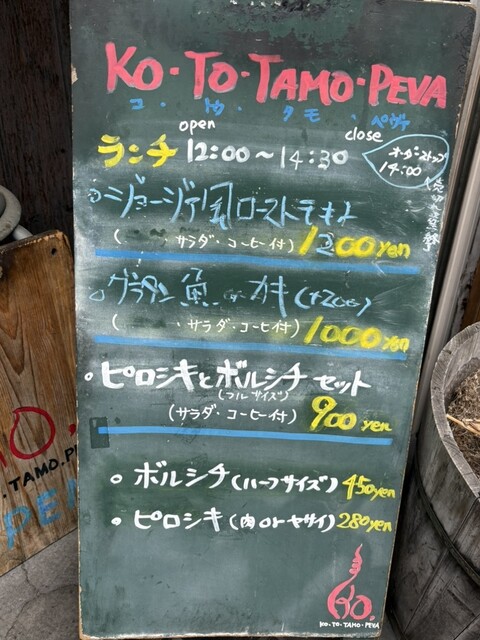 KO・TO・TAMO・PEVA
コ・トゥ・タモ・ペヴァ
open
close
ランチ 12:00～14:30
オーダーストップ
14:00
ジョージア風ローストチキン
(　　、サラダ・コーヒー付) 1200yen
グラタン 魚 or カキ (+200)
(　　、サラダ・コーヒー付) 1000yen
ピロシキとボルシチ セット
(フルサイズ)
(サラダ・コーヒー付) 900yen
ボルシチ(ハーフサイズ) 450yen
ピロシキ(肉 or ヤサイ) 280yen
KO・TO・TAMO・PEVA
TAMO.P